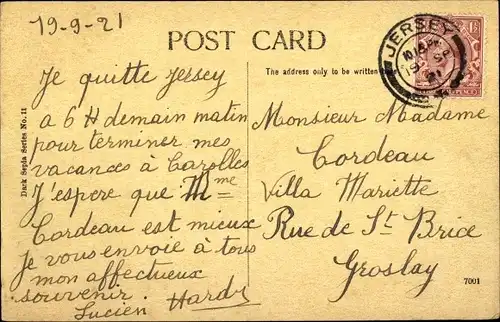 19-9-21
POST CARD
The address only to be written
JERSEY
Dack Sepia Series No. 11
Je quitte Jersey
a 6 H demain matin
pour terminer mes
vacances à Carolles
J'espere que Mme
Cordeau est mieux
Je vous envoie à tous
mon affectueux
souvenir.
Lucien Hardy
Monsieur Madame
Cordeau
Villa Mariette
Rue de St Brice
Groslay
7001